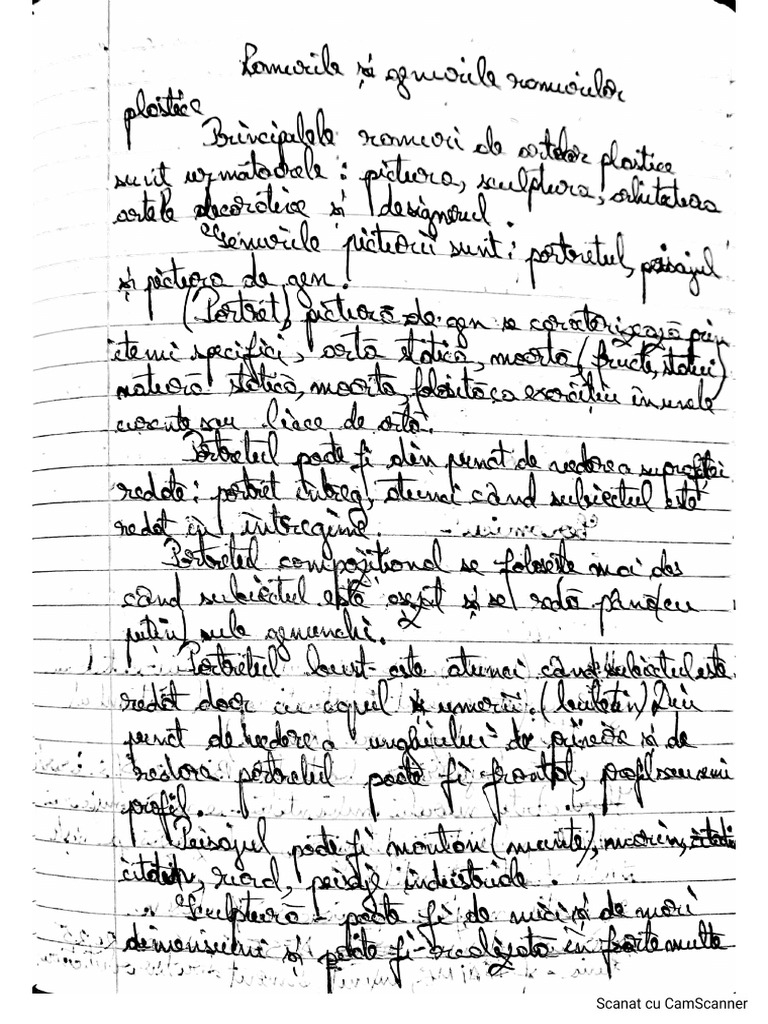 Ramurile și genurile ramurilor
plastice
Principalele ramuri de artelor plastice
sunt următoarele: pictura, sculptura, arhitectura
artele decorative și designerul.
Genurile picturii sunt: portretul, peisajul
și pictura de gen.
(Portret), pictură de gen se caracterizează prin
itemi specifici, artă statică, moartă (fructe, statui)
natură statică, moartă, folosită ca exercițiu în unele
curente sau licee de artă.
Portretul poate fi din punct de vedere a suprafeței
redate: portret întreg, atunci când subiectul este
redat în întregime.
Portretul compozițional se folosește mai des
când subiectul este așezat și se redă până (cu
puțin) sub genunchi.
Portretul bust este atunci când subiectul este
redat doar cu capul și umerii. Din
punct de vedere a unghiului de privire și de
redare portretul poate fi frontal, profil sau semi
profil.
Peisajul poate fi montan (munte), marin,
citadin, rural, peisaj industriale.
Sculptură - poate fi de mici și de mari
dimensiuni și poate fi realizată în foarte multe
Scanat cu CamScanner